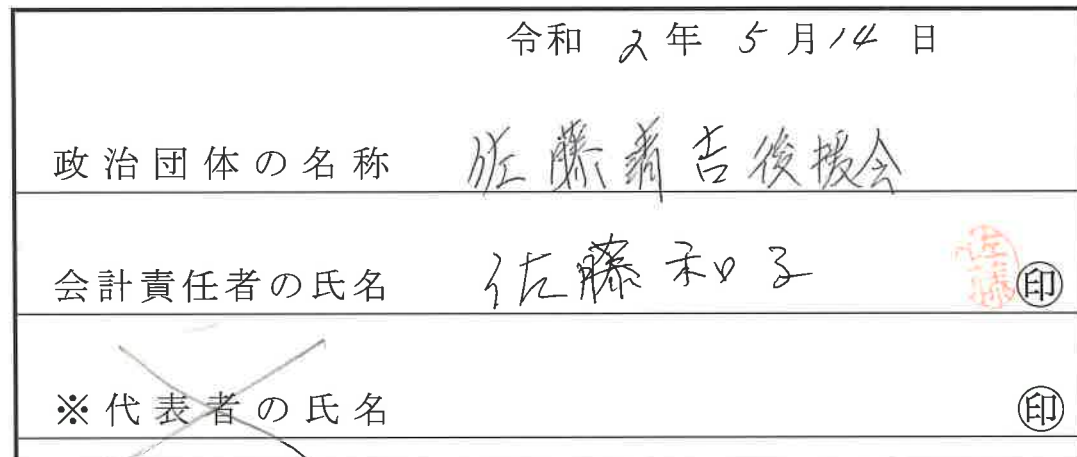 令和 2 年 5 月 14 日
政治団体の名称 佐藤清吉後援会
会計責任者の氏名 佐藤和子 佐藤 ㊞
※代表者の氏名 ㊞